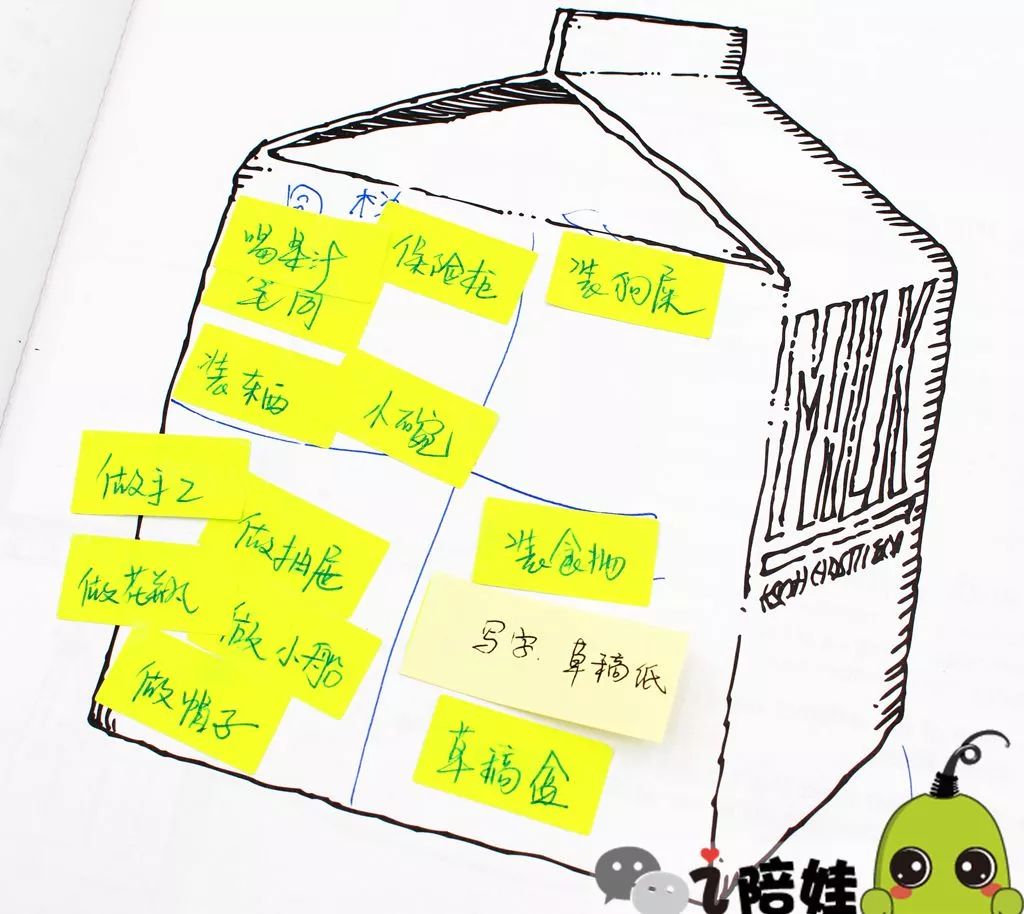 喝果汁
保险柜
装狗屎
装东西
做手工
做抽屉
装食物
做花瓶
做小船
写字、草稿纸
做帽子
草稿盒
MILK
陪娃